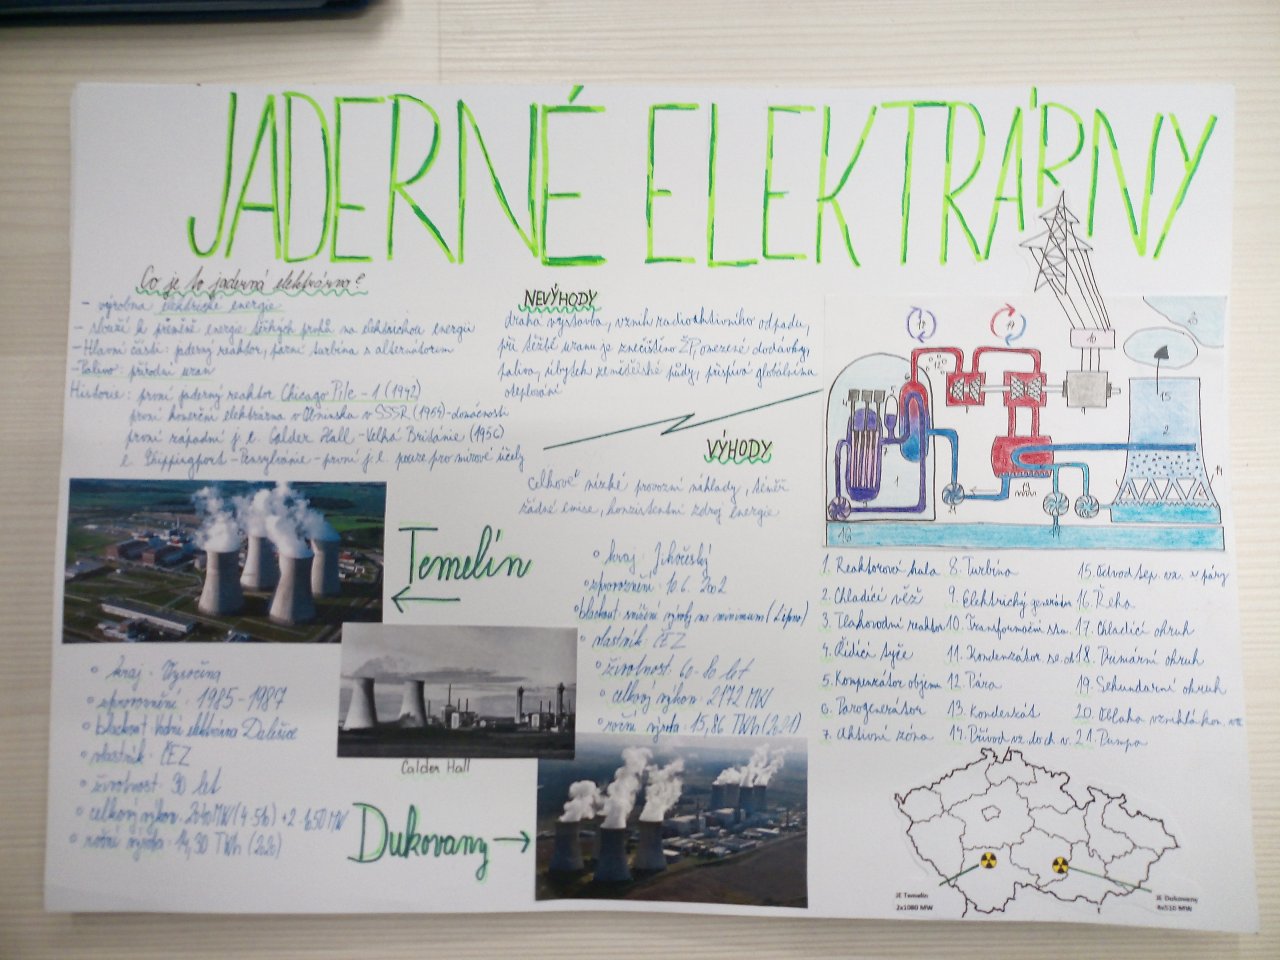 JADERNÉ ELEKTRÁRNY
Co je to jaderná elektrárna?
- výrobna elektrické energie
- slouží k přeměně energie těžkých prvků na elektrickou energii
- Hlavní části: jaderný reaktor, parní turbína s alternátorem
- Palivo: přírodní uran
Historie: první jaderný reaktor Chicago Pile - 1 (1942)
první komerční elektrárna v Obninsku v SSSR (1954) - domácnosti
první západní j. e. Calder Hall - Velká Británie (1956)
e. Shippingport - Pensylvánie - první j. e. pouze pro mírové účely
NEVÝHODY
drahá výstavba, vznik radioaktivního odpadu,
při těžbě uranu je znečištěno ŽP, omezené dodávky
paliva, úbytek zemědělské půdy, přispívá globálnímu
oteplování
VÝHODY
Celkově nízké provozní náklady, téměř
žádné emise, konzistentní zdroj energie
Temelín
kraj: Jihočeský
zprovoznění: 10. 6. 2002
blackout snížení výroby na minimum (Lipno)
vlastník: ČEZ
životnost: 60-80 let
celkový výkon: 2172 MW
roční výroba: 15,86 TWh (2021)
kraj: Vysočina
zprovoznění: 1985 - 1987
blackout: Vodní elektrárna Dalešice
vlastník: ČEZ
životnost: 30 let
celkový výkon:
roční výroba:
Calder Hall
Dukovany
1. Reaktorová hala
2. Chladící věž
3. Tlakovodní reaktor
4. Řídící tyče
5. Kompenzátor objemu
6. Parogenerátor
7. Aktivní zóna
8. Turbína
9. Elektrický generátor
10. Transformační sta.
11. Kondenzátor se. o.
12. Pára
13. Kondenzát
14. Přívod vz. do ch. v.
15. Odvod tep. vz. a páry
16. Řeka
17. Chladící okruh
18. Primární okruh
19. Sekundární okruh
20. Oblaha vzniklá kon. vz.
21. Pumpa
JE Temelín
2x1080 MW
JE Dukovany
4x510 MW